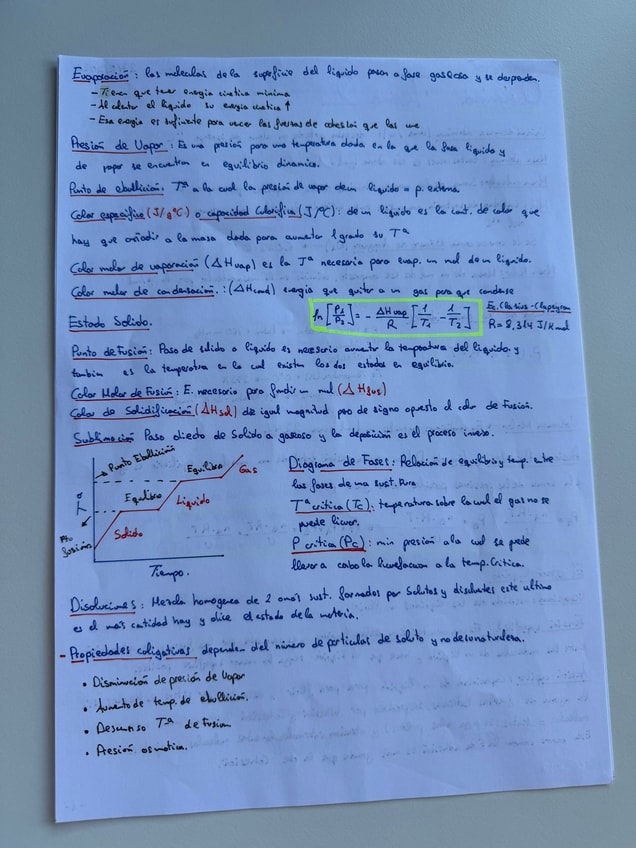 Evaporación: las moleculas de la superficie del liquido pasan a fase gaseosa y se desprenden.
- Tienen que tener energia cinetica minima
- Al calentar el liquido su energia cinetica ↑
- Esa energia es suficiente para vencer las fuerzas de cohesion que las une
Presión de Vapor: Es una presión para una temperatura dada en la que la fase liquido y
de vapor se encuentran en equilibrio dinamico.
Punto de ebullición: Tª a la cual la presión de vapor de un liquido = p. externa.
Calor especifico (J/gºC) o capacidad Calorifica (J/ºC): de un liquido es la cant. de calor que
hay que añadir a la masa dada para aumentar 1 grado su Tª
Calor molar de vaporación (ΔHvap) es la Tª necesario para evap. un mol de un liquido.
Calor molar de condensación.: (ΔHcond) energia que quitar a un gas para que condense
Estado Solido.
ln [P1/P2] = - ΔHvap/R · [1/T1 - 1/T2]
Ec. Clasius-Clapeyron
R = 8,314 J/K mol
Punto de Fusión: Paso de solido a liquido es necesario aumentar la temperatura del liquido y
tambien es la temperatura en la cual existen los dos estados en equilibrio.
Calor Molar de Fusión: E. necesario para fundir un mol (ΔHfus)
Calor de Solidificación (ΔHsol) de igual magnitud pero de signo opuesto el calor de Fusión.
Sublimación Paso directo de Solido a gaseoso y la deposición es el proceso inverso.
Punto Ebullición
Equilibrio
Gas
Equilibrio
Liquido
Tª
Pto
fusión
Solido
Tiempo.
Diagrama de Fases: Relación de equilibrio y temp. entre
las fases de una sust. Pura
Tª critica (Tc): temperatura sobre la cual el gas no se
puede licuar.
P critica (Pc): min presión a la cual se puede
llevar a cabo la licuefacion a la temp. Critica.
Disoluciones: Mezcla homogenea de 2 o más sust. formados por Solutos y disolventes este ultimo
es el más cantidad hay y dice el estado de la materia.
- Propiedades coligativas dependen del número de particulas de soluto y no de su naturaleza.
• Disminución de presión de Vapor
• Aumento de temp. de ebullición.
• Descenso Tª de Fusion
• Presión osmotica.